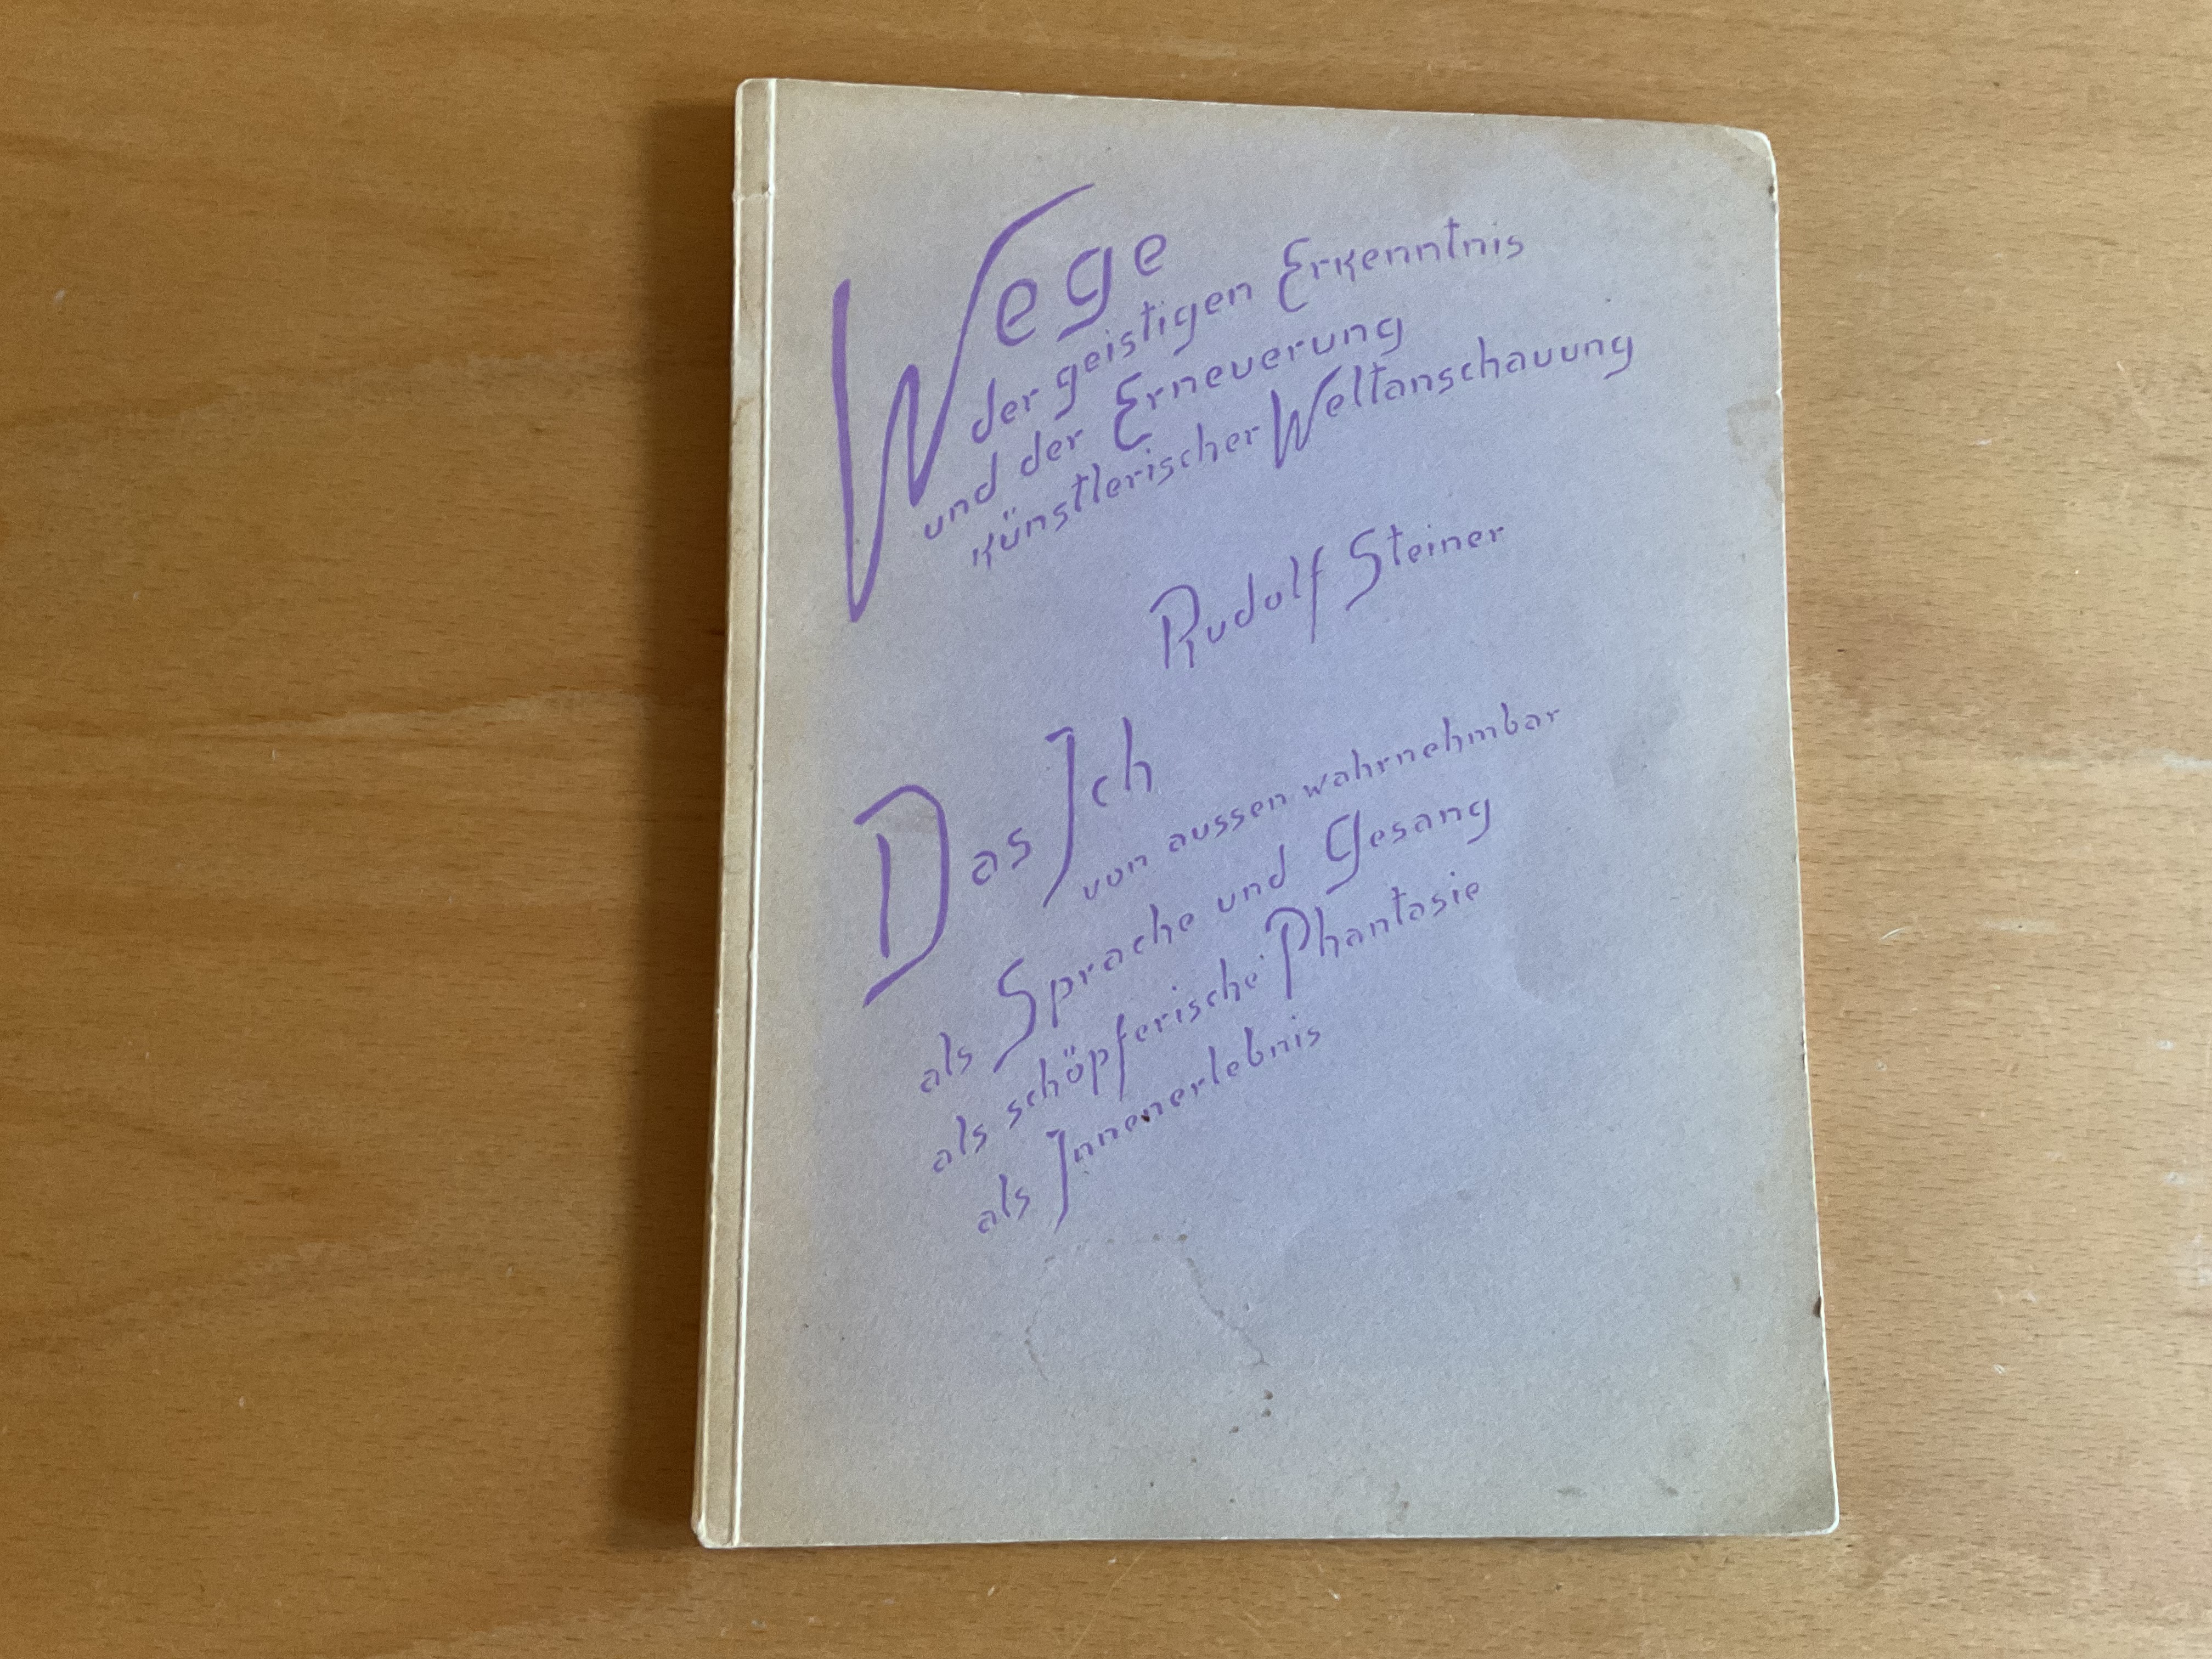 Wege
der geistigen Erkenntnis
und der Erneuerung
künstlerischer Weltanschauung
Rudolf Steiner
Das Ich
von aussen wahrnehmbar
als Sprache und Gesang
als schöpferische Phantasie
als Innenerlebnis